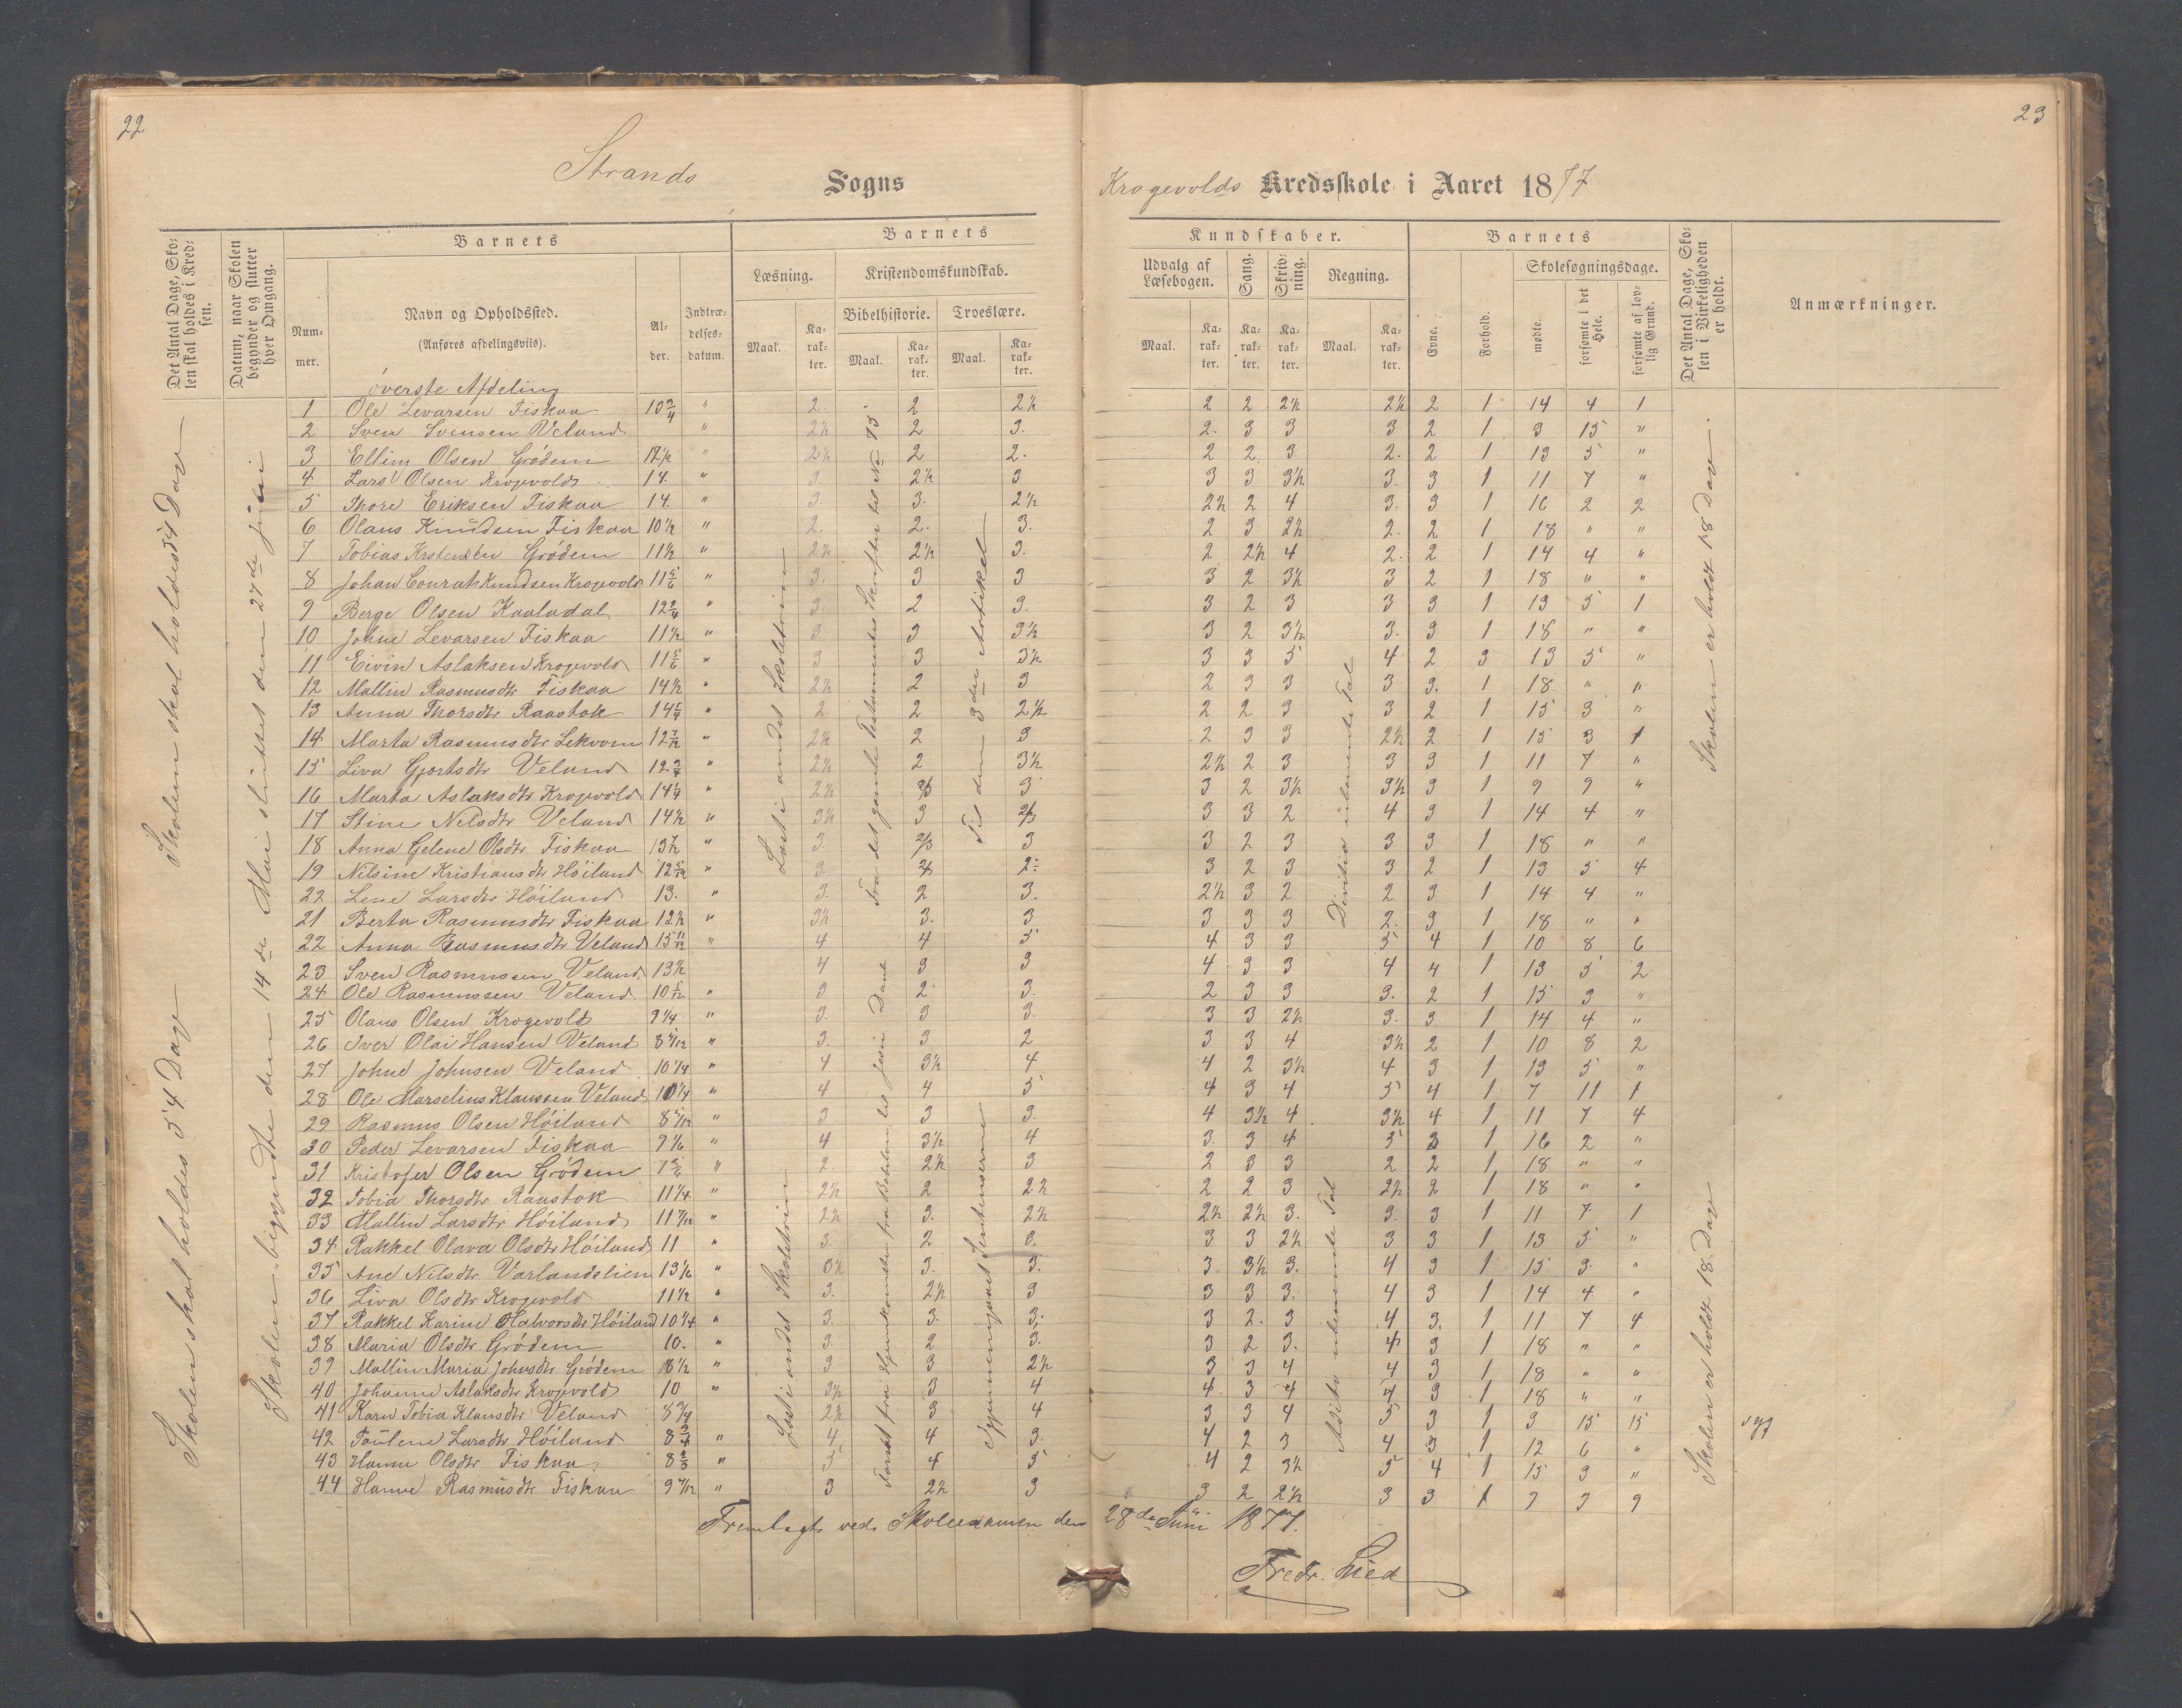 22
23
Strands Sogns
Krogevolds Kredsskole i Aaret 1877
Det Antal Dage, Skolen skal holdes i Kredsen.
Datum, naar Skolen begynder og slutter hver Omgang.
Barnets
Nummer.
Navn og Opholdssted.
(Anføres afdelingsviis).
Alder.
Indtrædelsesdatum.
Barnets
Læsning.
Kristendomskundskab.
Bibelhistorie.
Troeslære.
Maal.
Karakter.
Maal.
Karakter.
Maal.
Karakter.
Kundskaber.
Udvalg af Læsebogen.
Sang.
Skrivning.
Regning.
Maal.
Karakter.
Karakter.
Karakter.
Maal.
Karakter.
Barnets
Evne.
Forhold.
Skolesøgningsdage.
mødte.
forsømte i det Hele.
forsømte af lovlig Grund.
Det Antal Dage, Skolen i Virkeligheden er holdt.
Anmærkninger.
øverste Afdeling
1 Ole Levarsen Fiskaa 10 3/4 " 2. 2 2½ 2 2 2½ 2½ 2 1 14 4 1
2 Sven Svensen Veland " 2½ 2 3. 2. 3 3 3 2 1 3 15 "
3 Elling Olsen Grødem 12½ " 2½ 2 2. 2 2 3 2. 2 1 13 5 "
4 Lars Olsen Krogevold 14. " 3 2½ 3 3 3 3½ 3. 3 1 11 7 "
5 Thore Eriksen Fiskaa 14. " 3. 3. 2½ 2½ 2 4 3. 3 1 16 2 2
6 Olaus Knudsen Fiskaa 10½ " 2. 2. 3. 2 3 2½ 2. 2 1 18 " "
7 Tobias Grødem 11½ " 2½ 2½ 3. 2 2½ 4 2. 2 1 14 4 "
8 Johan Conrat Knudsen Krogevold 11 5/6 " 3. 3 3 3 2 3½ 3 2 1 18 " "
9 Berge Olsen Kaaladal 12 2/4 " 3. 2 3. 3 2 3 3 3 1 13 5 1
10 Johne Levarsen Fiskaa 11½ " 3 3 3½ 3 2 3½ 3. 3 1 18 " "
11 Eivin Aslaksen Krogevold 11 5/6 " 3 3 3½ 3 3 5 4 2 3 13 5 "
12 Mallin Rasmusdtr Fiskaa 14½ " 2½ 2 3 2 3 3 3 3. 1 18 " "
13 Anna Thorsdtr Raastok 14 " 2 2 2½ 2 2 3 3 2 1 15 3 "
14 Marta Rasmusdtr 12 7/12 " 2½ 2 3 2 3 3 2½ 2 1 15 3 1
15 Liva Gjertsdtr Veland 12 3/4 " 2½ 2 3½ 2½ 2 3 3 3 1 11 7 "
16 Marta Aslaksdtr Krogevold 14 1/4 " 2½ 2/3 3 3 2 3½ 3½ 3 1 9 9 "
17 Stine Nilsdtr Veland 14½ " 3½ 3 2/3 3 3 2 4 3 1 14 4 "
18 Anna Gelene Olsdtr Fiskaa " 3. 2/3 3 3 2 3 3 3 1 18 " "
19 Nilsine Kristiansdtr Høiland 12 5/12 " 3. 2: 3 2 3 3 2 1 13 5 4
22 Lene Larsdtr Høiland 13. " 3. 2 3. 2½ 3 2 2 3 1 14 4 "
21 Berta Rasmusdtr Fiskaa 12½ " 3½ 3. 3 3 3 3 2. 3 1 18 " "
22 Anna Rasmusdtr Veland 15 11/12 " 4 4 5 4 3 3 5 4 1 10 8 6
23 Sven Rasmussen Veland 13½ 4 3 3 4 3 3 4 4 1 13 5 2
24 Ole Rasmussen Veland 10 5/12 " 3 2 3. 2 3 3 3. 2 1 15 3 "
25 Olaus Olsen Krogevold 9¼ " 3. 3 3. 3 3 2½ 3. 3 1 14 4 "
26 Iver Olai Hansen Veland 8 5/12 " 3. 3 2 3 3 4 3½ 2 1 10 8 2
27 Johne Johnsen Veland 10¼ " 4 3½ 4 4 2 3½ 4 3 1 13 5 "
28 Ole Marselius Klaussen Veland 10¼ " 4 4 5 4 3 4 5 4 1 7 11 1
29 Rasmus Olsen Høiland 8 5/12 " 3 3 3. 4 3½ 4 3½ 4 1 11 7 4
30 Peder Levarsen Fiskaa 9 1/6 " 4 3½ 4 3. 3 4 5 3 1 16 2 "
31 Kristofer Olsen Grødem 9 5/6 " 2. 2½ 3 2 3 3 2 2 1 18 " "
32 Tobia Thorsdtr Raastok 11¼ " 2½ 2 2½ 2 2 3 2½ 2 1 18 " "
33 Mallin Larsdtr Høiland 11 7/12 " 2½ 3. 2½ 2½ 2½ 3. 3. 3 1 11 7 1
34 Rakkel Olava Olsdtr Høiland 11 " 3. 2 3. 3 3 2½ 3 3 1 13 5 "
35 Ane Nilsdtr Varlandslien 13½ " 3½ 3. 3. 3. 3½ 3. 4 3 1 15 3. "
36 Liva Olsdtr Krogevold 11½ " 3. 2½ 3 3 3 3. 4 3 1 14 4. "
37 Rakkel Karine Halvorsdtr Høiland 10¼ " 3. 3. 3. 3 2. 3 4 3. 1 11 7 4
38 Maria Olsdtr Grødem 10. " 3. 2 3. 3 2 3. 4 3 1 18 " "
39 Mallin Maria Johnsdtr Grødem 8½ " 3 3 2½ 3 3 4 4 3 1 18 " "
40 Johanne Aslaksdtr Krogevold 10 " 3½ 3 4 4. 3 4 4 3 1 18 " "
41 Karn Tobia Klausdtr Veland 8¾ 2½ 3 4 3 3 4 5 3 1 3 15 15 syg
42 Toulene Larsdtr Høiland 8¾ " 4 4 3. 4 2 3 4 3 1 12 6 "
43 Hanne Olsdtr Fiskaa 8 2/3 " 5 4 5 4 2 3½ 5 4 1 15 3 "
44 Hanne Rasmusdtr Fiskaa 9 7/12 " 3 2½ 3 3 2 2½ 3 3 1 9 9 9
Skolen skal holdes 54 Dage
Skolen skal holdes 54 Dage
Skolen begyndte den 14de Mai sluttet den 27de Juni
Læst i andet Skoletrin
Læst i andet Skoletrin
Fra det gamle Testamentes Skrifter til No 75
Til den 3die Artikel
Divition ubenævnte Tal
Adition ubenævnte Tal
Skolen er holdt 18 Dage.
Skolen er holdt 18 Dage
Fremlagt ved Skoleexamen den 28de Juni 1877.
Fredr. Lied